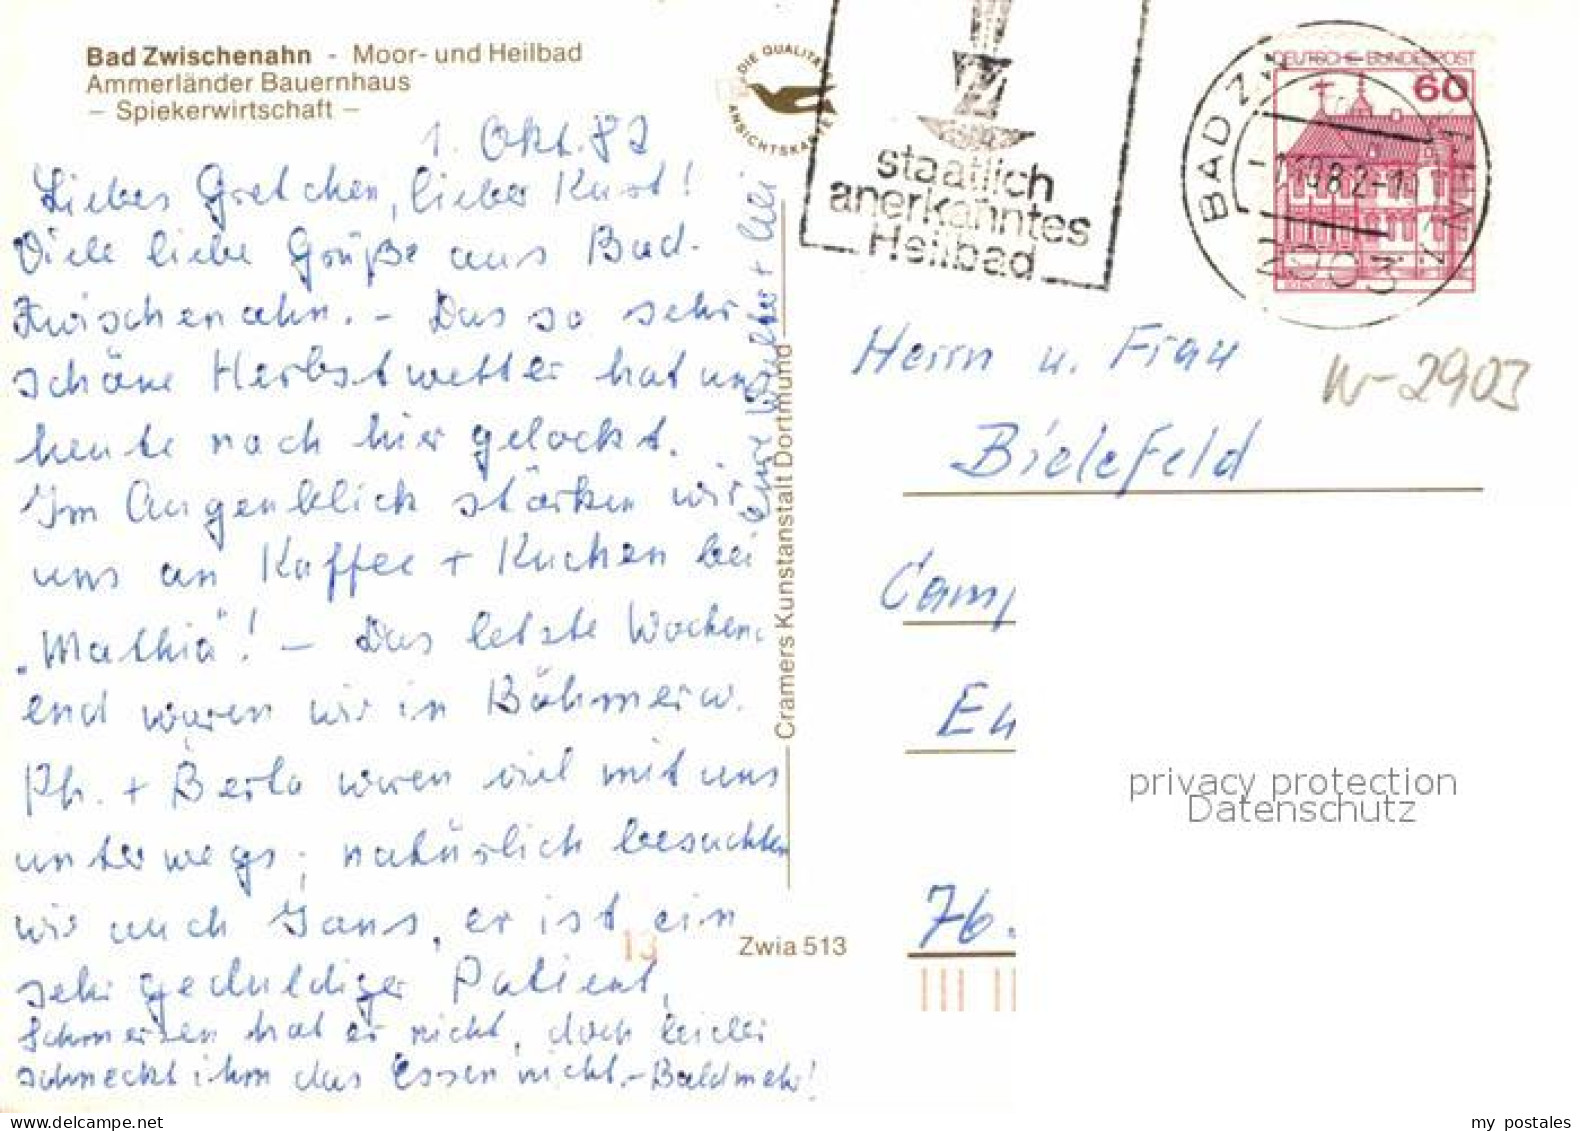 Bad Zwischenahn - Moor- und Heilbad
Ammerländer Bauernhaus
– Spiekerwirtschaft –
1. Okt. 82
Liebes Gretchen, lieber Kurt!
Viele liebe Grüße aus Bad-
Zwischenahn. – Das so sehr
schöne Herbstwetter hat uns
heute nach hier gelockt.
Im Augenblick stärken wir
uns an Kaffee + Kuchen bei
„Mathia"! – Das letzte Wochen-
end waren wir in Böhmerw.
Ph. + Berta waren viel mit uns
unterwegs; natürlich besuchten
wir auch Jans, er ist ein
sehr geduldiger Patient,
Schmerzen hat er nicht, doch leider
schmeckt ihm das Essen nicht. – Bald mehr!
Eure Walter +
DIE QUALITÄTS
ANSICHTSKARTE
Cramers Kunstanstalt Dortmund
13
Zwia 513
staatlich
anerkanntes
Heilbad
DEUTSCHE BUNDESPOST
60
BAD ZW
2903
W-2903
Herrn u. Frau
Bielefeld
Camp
Eu
76.
privacy protection
Datenschutz
my postales